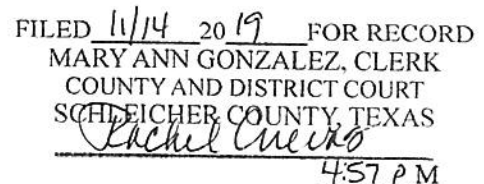 FILED 11/14 2019 FOR RECORD
MARY ANN GONZALEZ, CLERK
COUNTY AND DISTRICT COURT
SCHLEICHER COUNTY, TEXAS
Rachel
4:57 P M